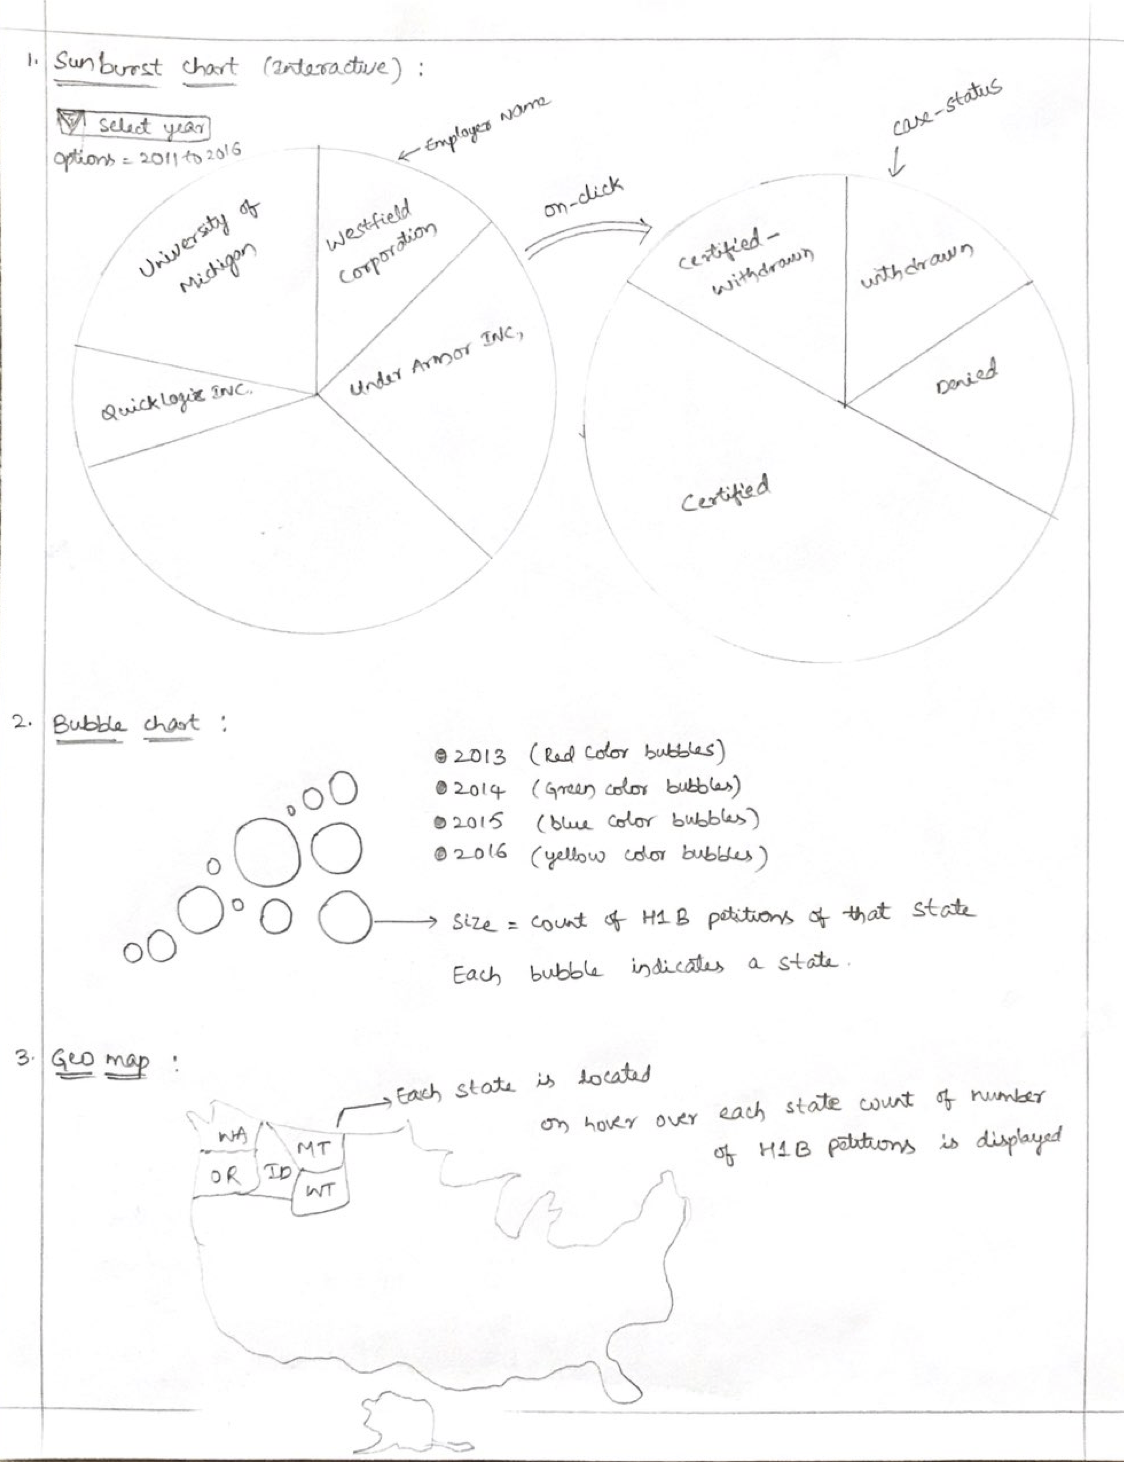 1. Sunburst chart (Interactive) :
Select year
Options = 2011 to 2016
Employer Name
University of
Michigan
Westfield
Corporation
Under Armor INC,
QuickLogix INC.
on-click
case-status
Certified-
Withdrawn
withdrawn
Denied
Certified
2. Bubble chart :
2013 (Red color bubbles)
2014 (Green color bubbles)
2015 (blue color bubbles)
2016 (yellow color bubbles)
Size = count of H1B petitions of that state
Each bubble indicates a state.
3. Geo map :
Each state is located
on hover over each state count of number
of H1B petitions is displayed
WA
MT
OR
ID
WT